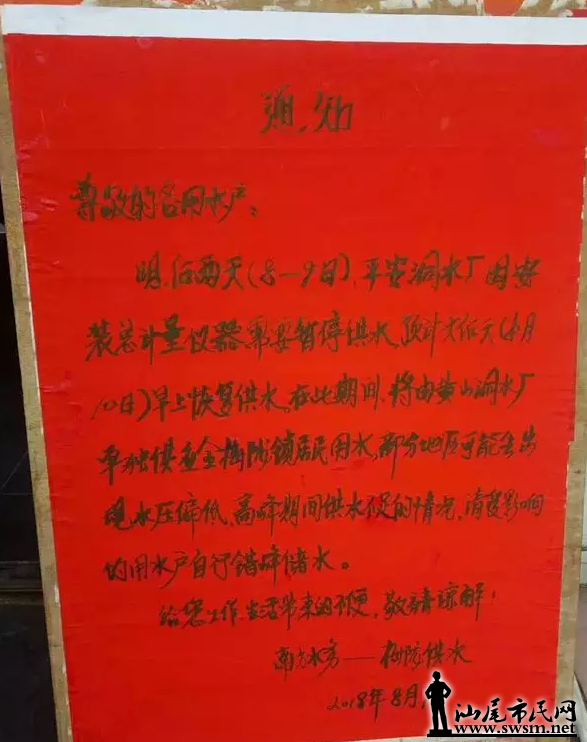 通知
尊敬的各用水户：
明、后两天(8—9日)，平安洞水厂因安
装总计量仪器需要暂停供水，预计大后天(本月
10日)早上恢复供水。在此期间，将由黄山洞水厂
单独供应全梅陇镇居民用水，部分地区可能会出
现水压偏低、高峰期间供水不足的情况，请受影响
的用水户自行错峰储水。
给您工作、生活带来的不便，敬请谅解！
南方水务——梅陇供水
2018年8月
汕尾市民网
www.swsm.net